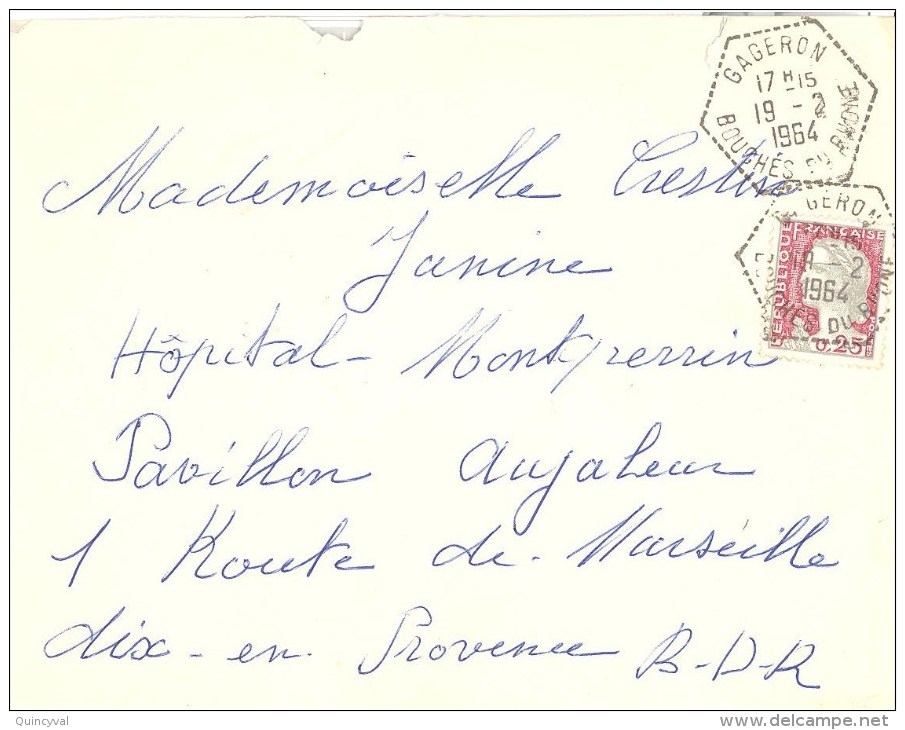 GAGERON
17 H 15
19 - 2
1964
BOUCHES DU RHONE
GERON
19 - 2
1964
HES DU
REPUBLIQUE FRANÇAISE
0,25
Mademoiselle Crestin
Janine
Hôpital - Montperrin
Pavillon
1 Route de - Marseille
Aix - en - Provence B-D-R
Quincyval
delcampe.net